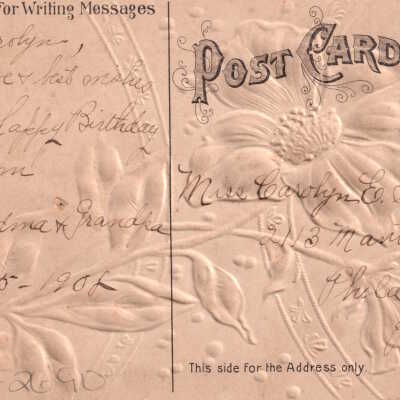 For Writing Messages
rolyn,
e & best wishes
Happy Birthday
m
dma & Grandpa
5-1908
2690
POST CARD
Miss Carolyn E.
2113
Phila
This side for the Address only.